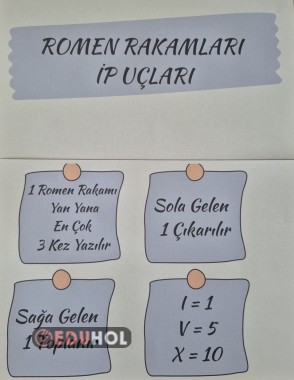 ROMEN RAKAMLARI
İP UÇLARI
1 Romen Rakamı
Yan Yana
En Çok
3 Kez Yazılır
Sola Gelen
1 Çıkarılır
Sağa Gelen
1 Toplanır
EDUHOL
I = 1
V = 5
X = 10